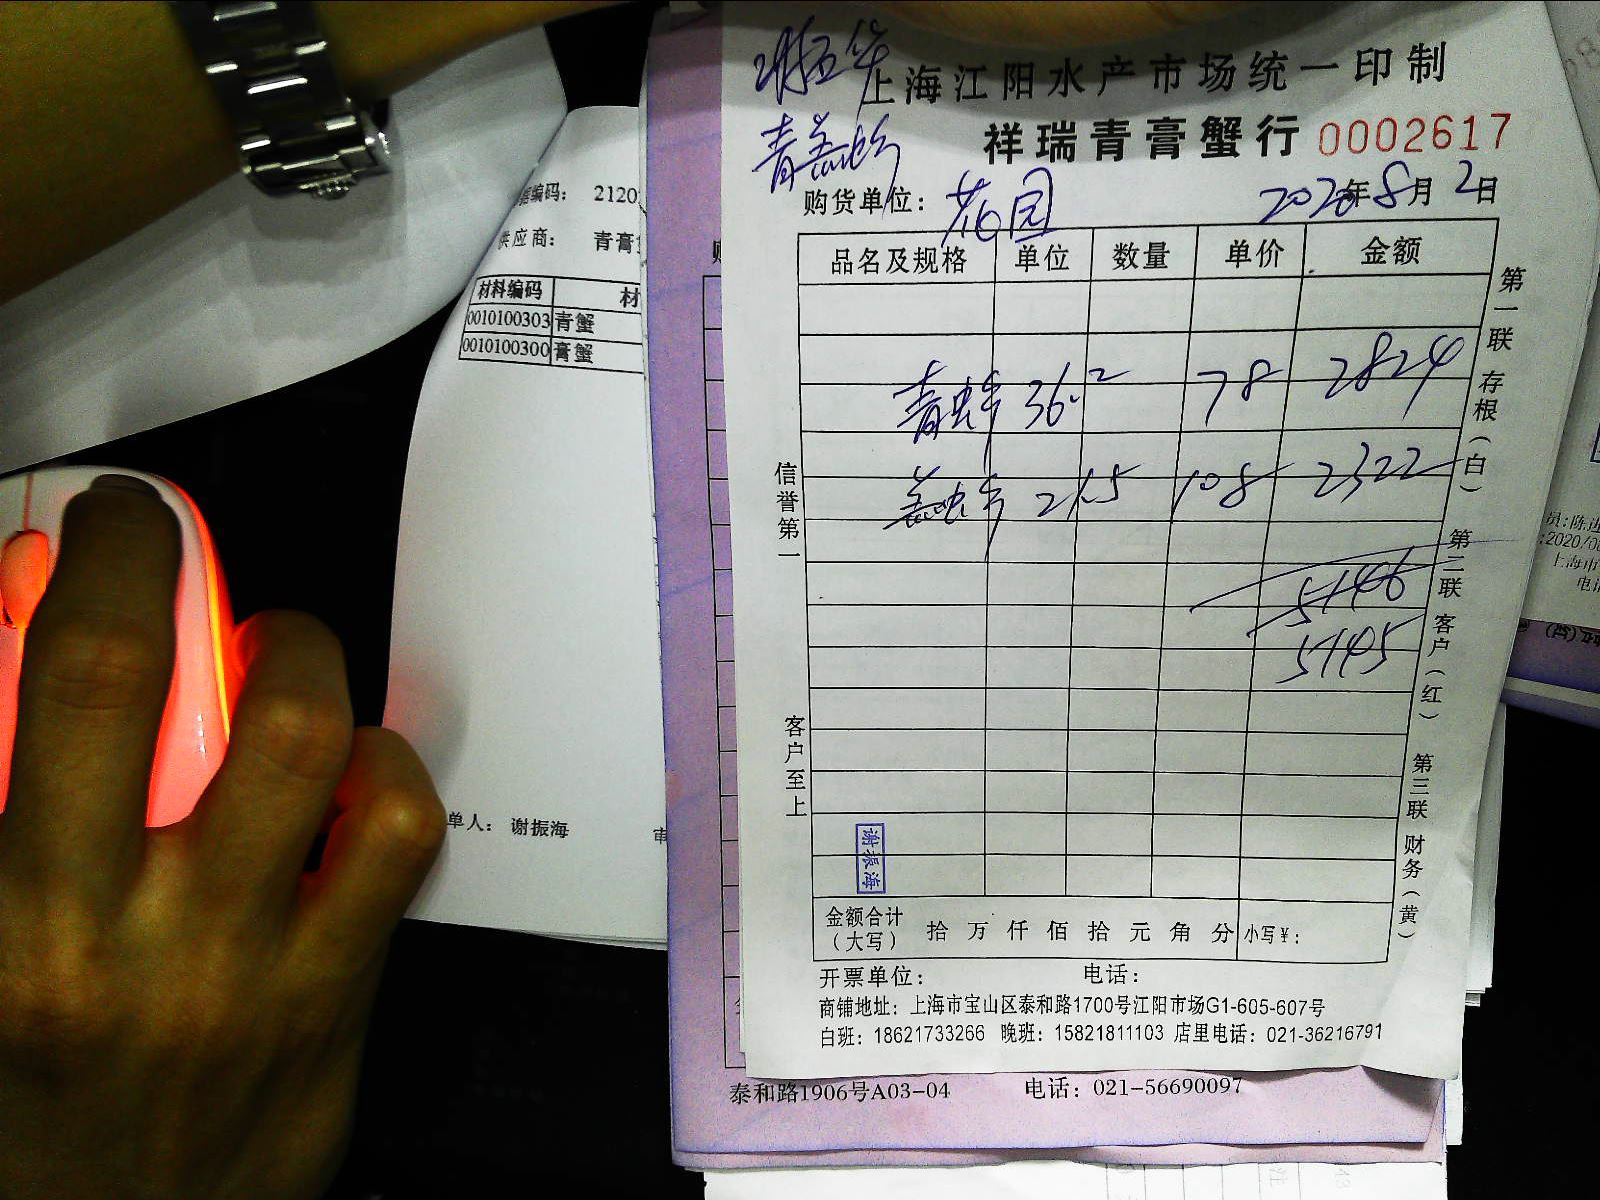 上海江阳水产市场统一印制
祥瑞青膏蟹行 0002617
购货单位: 花园 2020年8月2日
品名及规格 单位 数量 单价 金额
青蟹 36.2 78 2824
膏蟹 21.5 108 2322
5146
5145
信誉第一
客户至上
第一联存根(白)
第二联客户(红)
第三联财务(黄)
谢振海
金额合计
(大写) 拾 万 仟 佰 拾 元 角 分 小写¥:
开票单位: 电话:
商铺地址: 上海市宝山区泰和路1700号江阳市场G1-605-607号
白班: 18621733266 晚班: 15821811103 店里电话: 021-36216791
泰和路1906号A03-04 电话: 021-56690097
编码: 2120
供应商: 青膏
材料编码 材
0010100303 青蟹
0010100300 膏蟹
单人: 谢振海 审